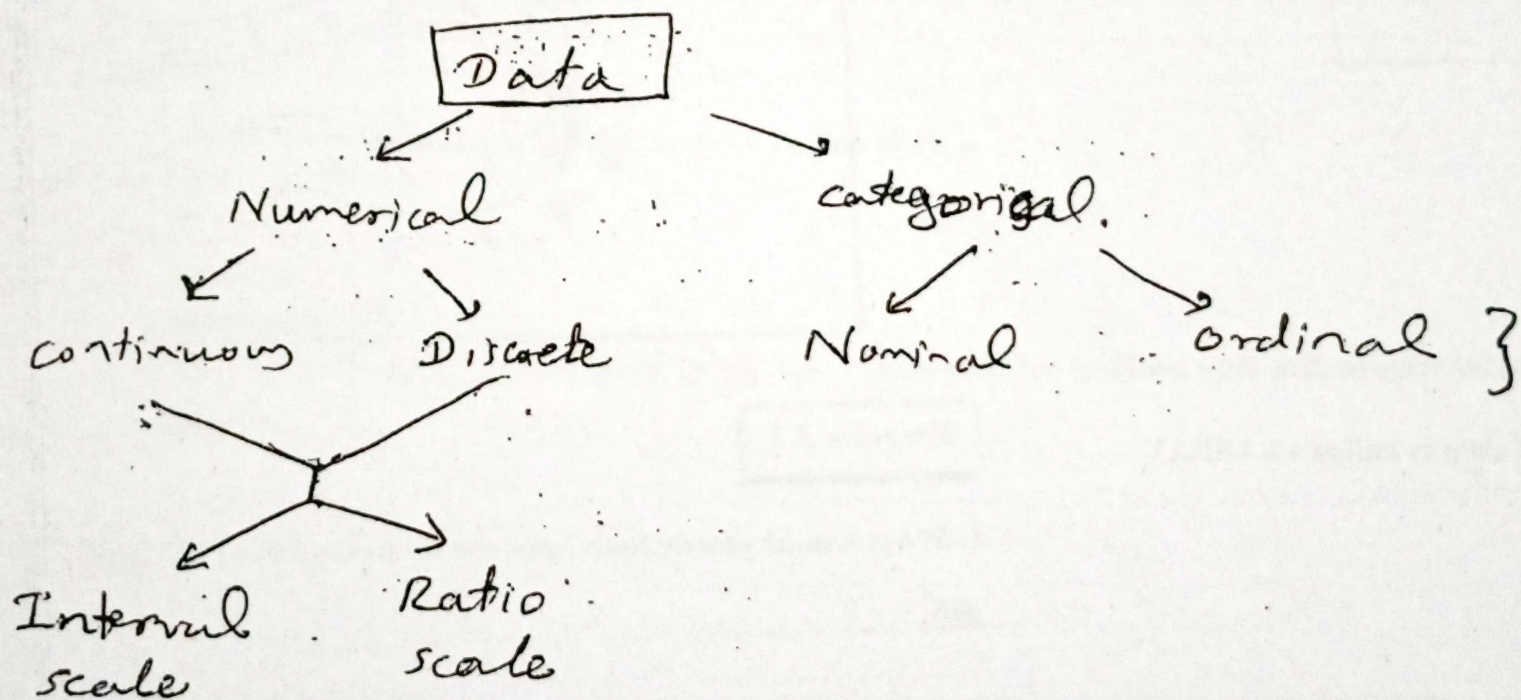 Data
Numerical categorical.
continuous Discrete Nominal ordinal }
Interval Ratio
scale scale